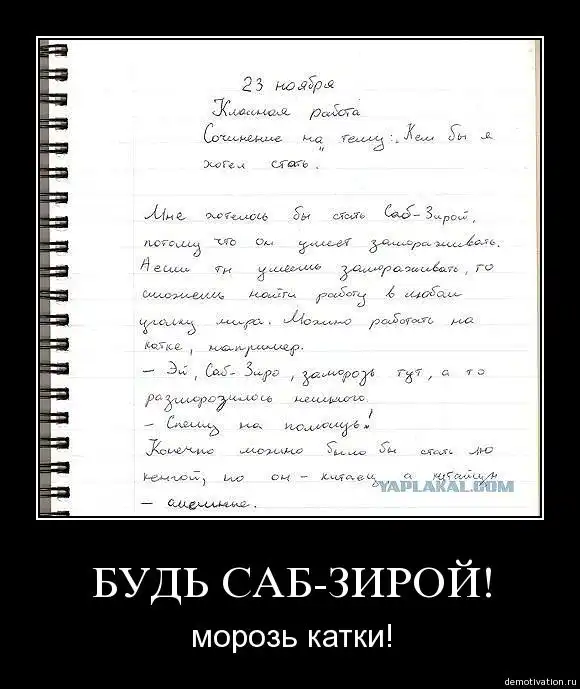 23 ноября
Классная работа
Сочинение на тему: „Кем бы я
хотел стать".
Мне хотелось бы стать Саб-Зирой,
потому что он умеет замораживать.
А если ты умеешь замораживать, то
сможешь найти работу в любом
уголку мира. Можно работать на
катке, например.
– Эй, Саб-Зиро, заморозь тут, а то
разморозилось немного.
– Спешу на помощь!
Конечно можно было бы стать лю
кенгой, но он – китаец, а китайцы
– смешные.
YAPLAKAL.COM
БУДЬ САБ-ЗИРОЙ!
морозь катки!
demotivation.ru